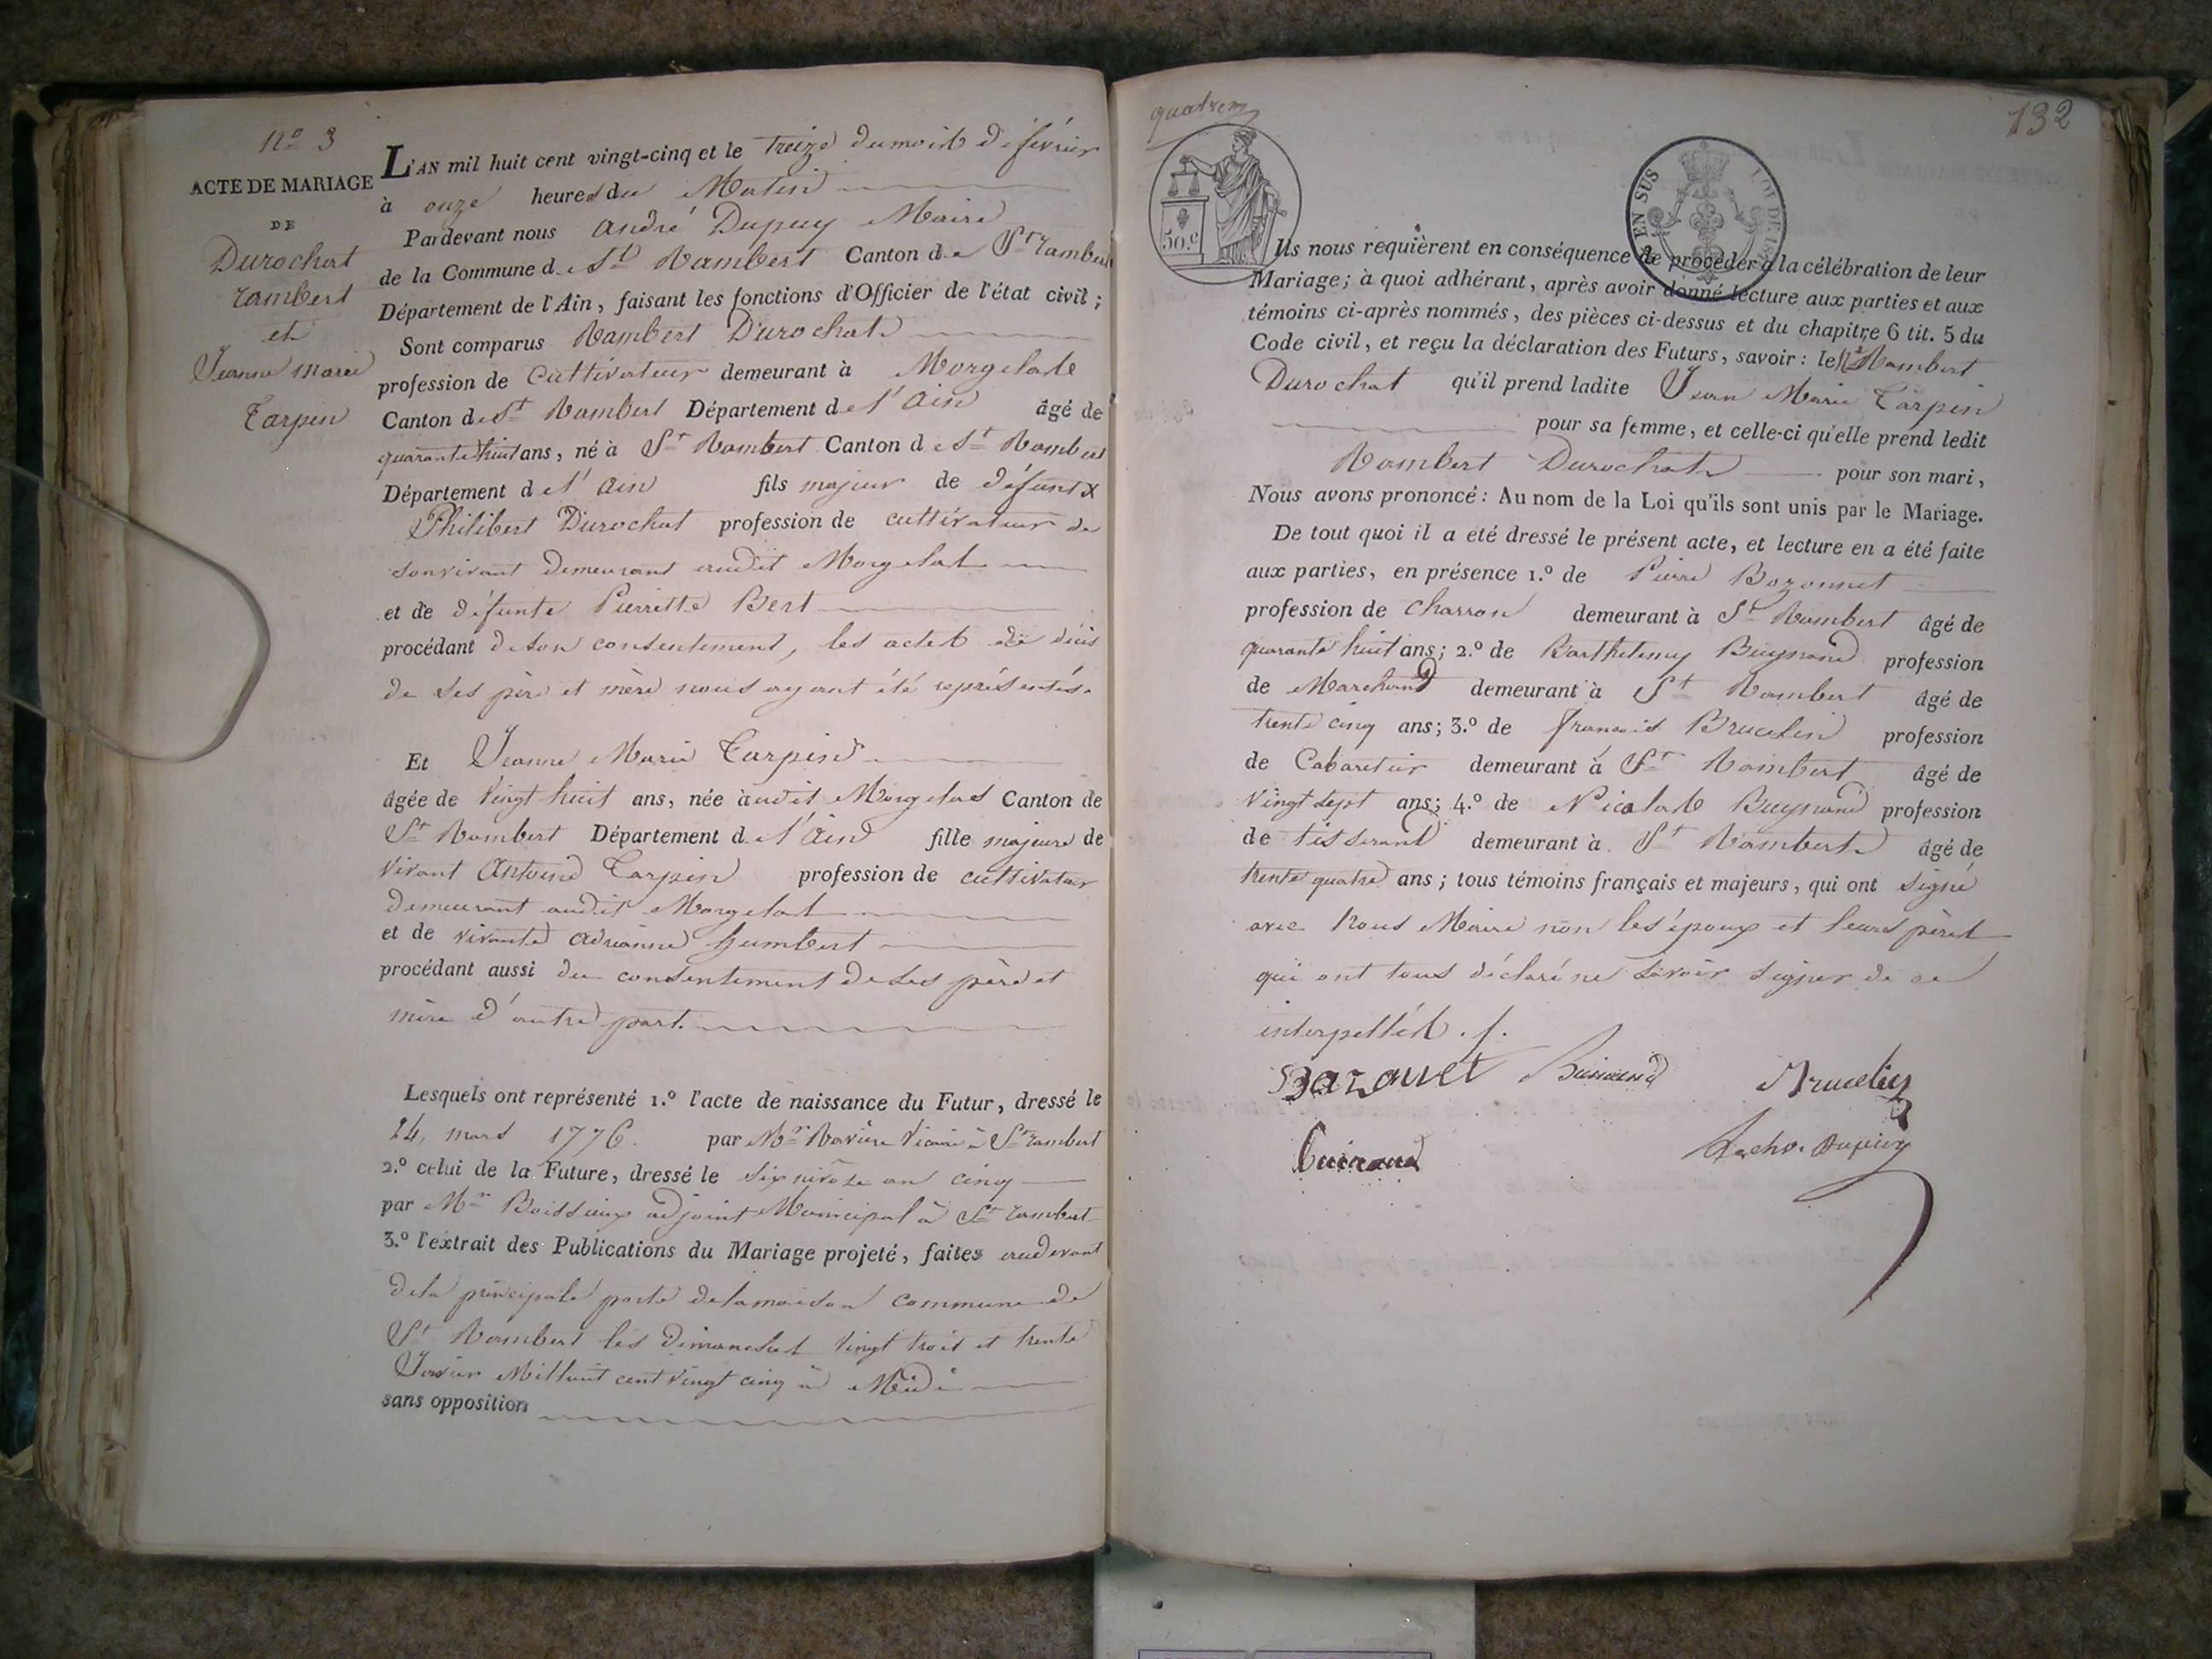 N.o 3
ACTE DE MARIAGE
DE
Durochat
rambert
et
Jeanne marie
Tarpin
L'AN mil huit cent vingt-cinq et le treize du mois de février
à onze heures du Matin
Pardevant nous André Dupuy Maire
de la Commune de St Rambert Canton de St rambert
Département de l'Ain, faisant les fonctions d'Officier de l'état civil;
Sont comparus Rambert Durochat
profession de Cultivateur demeurant à Morgelas
Canton de St Rambert Département de l'Ain âgé de
quarante huit ans, né à St Rambert Canton de St Rambert
Département de l'Ain fils majeur de défunt
Philibert Durochat profession de cultivateur de
son vivant demeurant audit Morgelat
et de défunte Pierrette Bert
procédant de son consentement, les actes de décès
de ses père et mère nous ayant été représentés.
Et Jeanne Marie Tarpin
âgée de vingt huit ans, née audit Morgelas Canton de
St Rambert Département de l'Ain fille majeure de
vivant Antoine Tarpin profession de cultivateur
demeurant audit Morgelat
et de vivante Adrianne humbert
procédant aussi du consentement de ses père et
mère d'autre part.
Lesquels ont représenté 1.o l'acte de naissance du Futur, dressé le
24, mars 1776. par Mr Vicaire à St rambert
2.o celui de la Future, dressé le six nivôse an cinq
par Mr Boissieux adjoint Municipal à St rambert
3.o l'extrait des Publications du Mariage projeté, faites audevant
de la principale porte de la maison commune de
St Rambert les dimanches vingt trois et trente
Janvier Mil huit cent vingt cinq à Midi
sans opposition
132
50.c
EN SUS
Ils nous requièrent en conséquence de procéder à la célébration de leur
Mariage; à quoi adhérant, après avoir donné lecture aux parties et aux
témoins ci-après nommés, des pièces ci-dessus et du chapitre 6 tit. 5 du
Code civil, et reçu la déclaration des Futurs, savoir: le Rambert
Durochat qu'il prend ladite Jean Marie Tarpin
pour sa femme, et celle-ci qu'elle prend ledit
Rambert Durochat pour son mari,
Nous avons prononcé: Au nom de la Loi qu'ils sont unis par le Mariage.
De tout quoi il a été dressé le présent acte, et lecture en a été faite
aux parties, en présence 1.o de Pierre Bozonnet
profession de Charron demeurant à St Rambert âgé de
quarante huit ans; 2.o de Barthelemy Buynand profession
de Marchand demeurant à St Rambert âgé de
trente cinq ans; 3.o de francois Brucelin profession
de Cabaretier demeurant à St Rambert âgé de
vingt sept ans; 4.o de Nicolas Buynand profession
de tisserand demeurant à St Rambert âgé de
trente quatre ans; tous témoins français et majeurs, qui ont signé
avec Nous Maire non les époux et leurs pères
qui ont tous déclaré ne savoir signer de ce
interpellés.
Brucelin
Dupuy